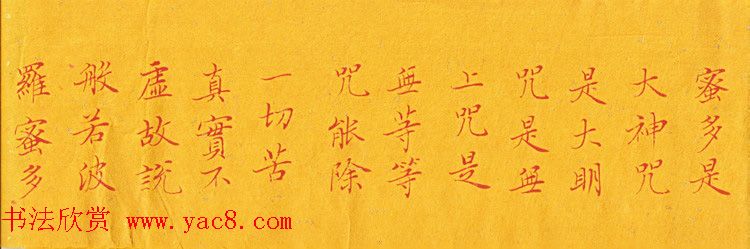 蜜多是
大神咒
是大明
咒是無
上咒是
無等等
咒能除
一切苦
真實不
虛故說
般若波
羅蜜多
书法欣赏 www.yac8.com